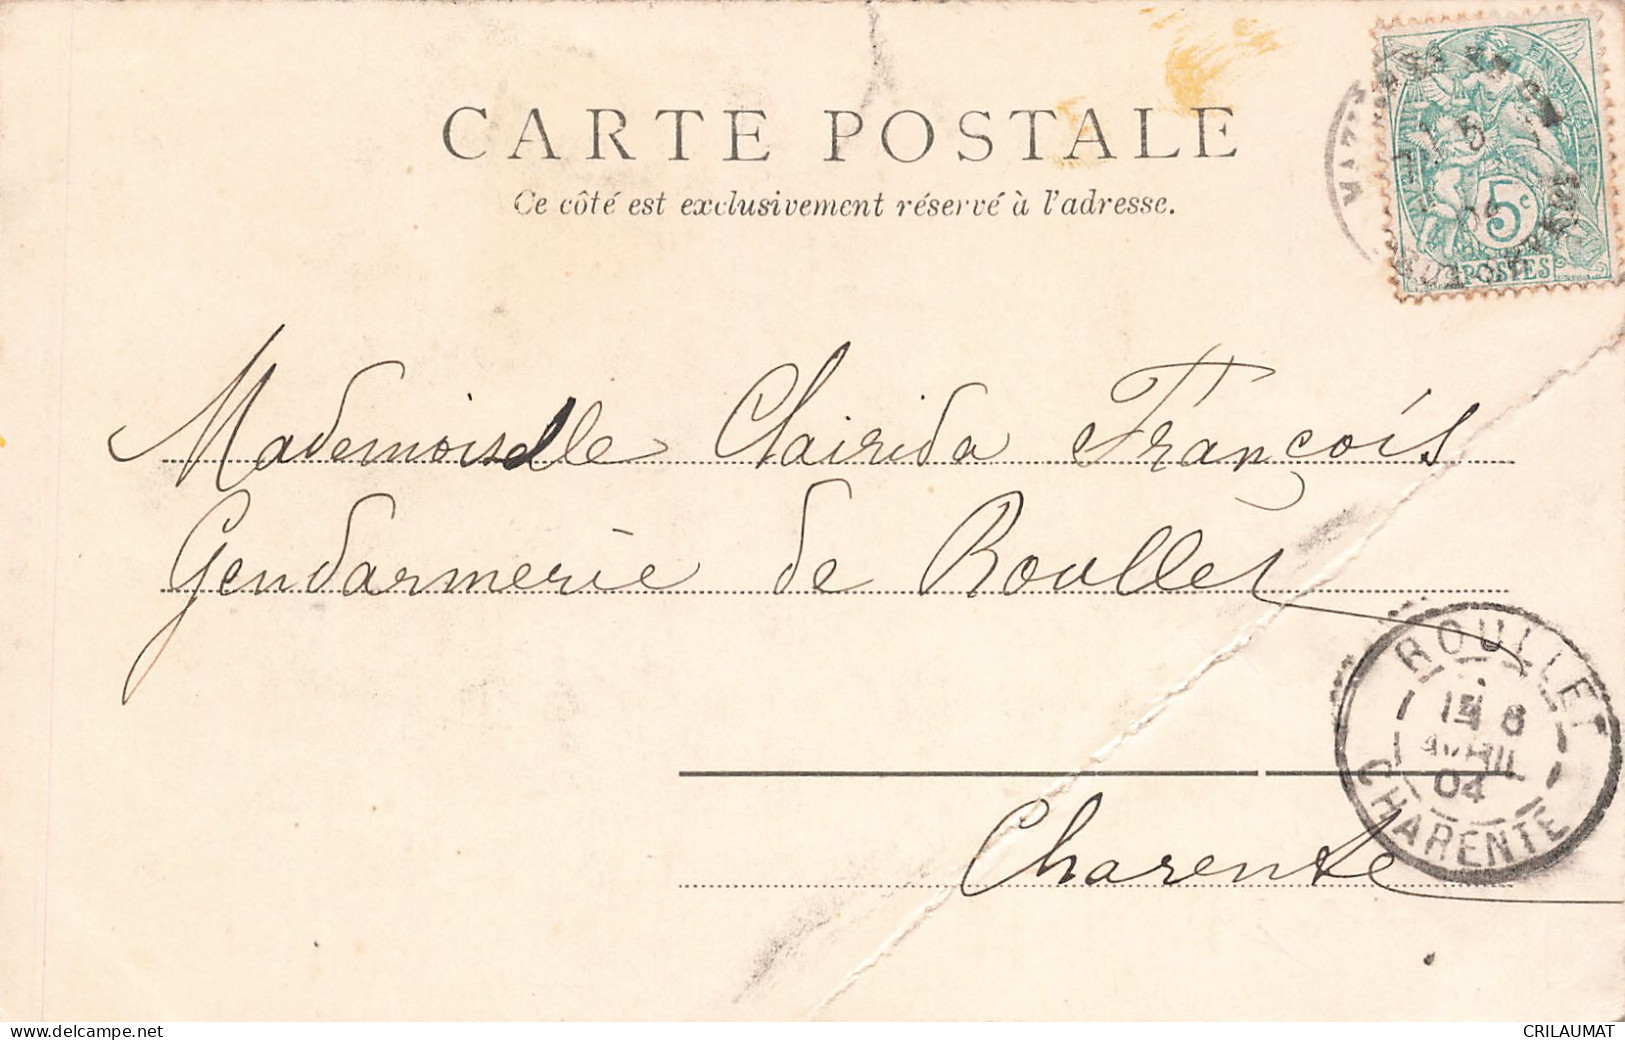 CARTE POSTALE
Ce côté est exclusivement réservé à l'adresse.
FRANÇAISE
5c
POSTES
Mademoiselle Clairida François
Gendarmerie de Roullet
Charente
ROULLET
8
AVRIL
04
CHARENTE
www.delcampe.net
CRILAUMAT